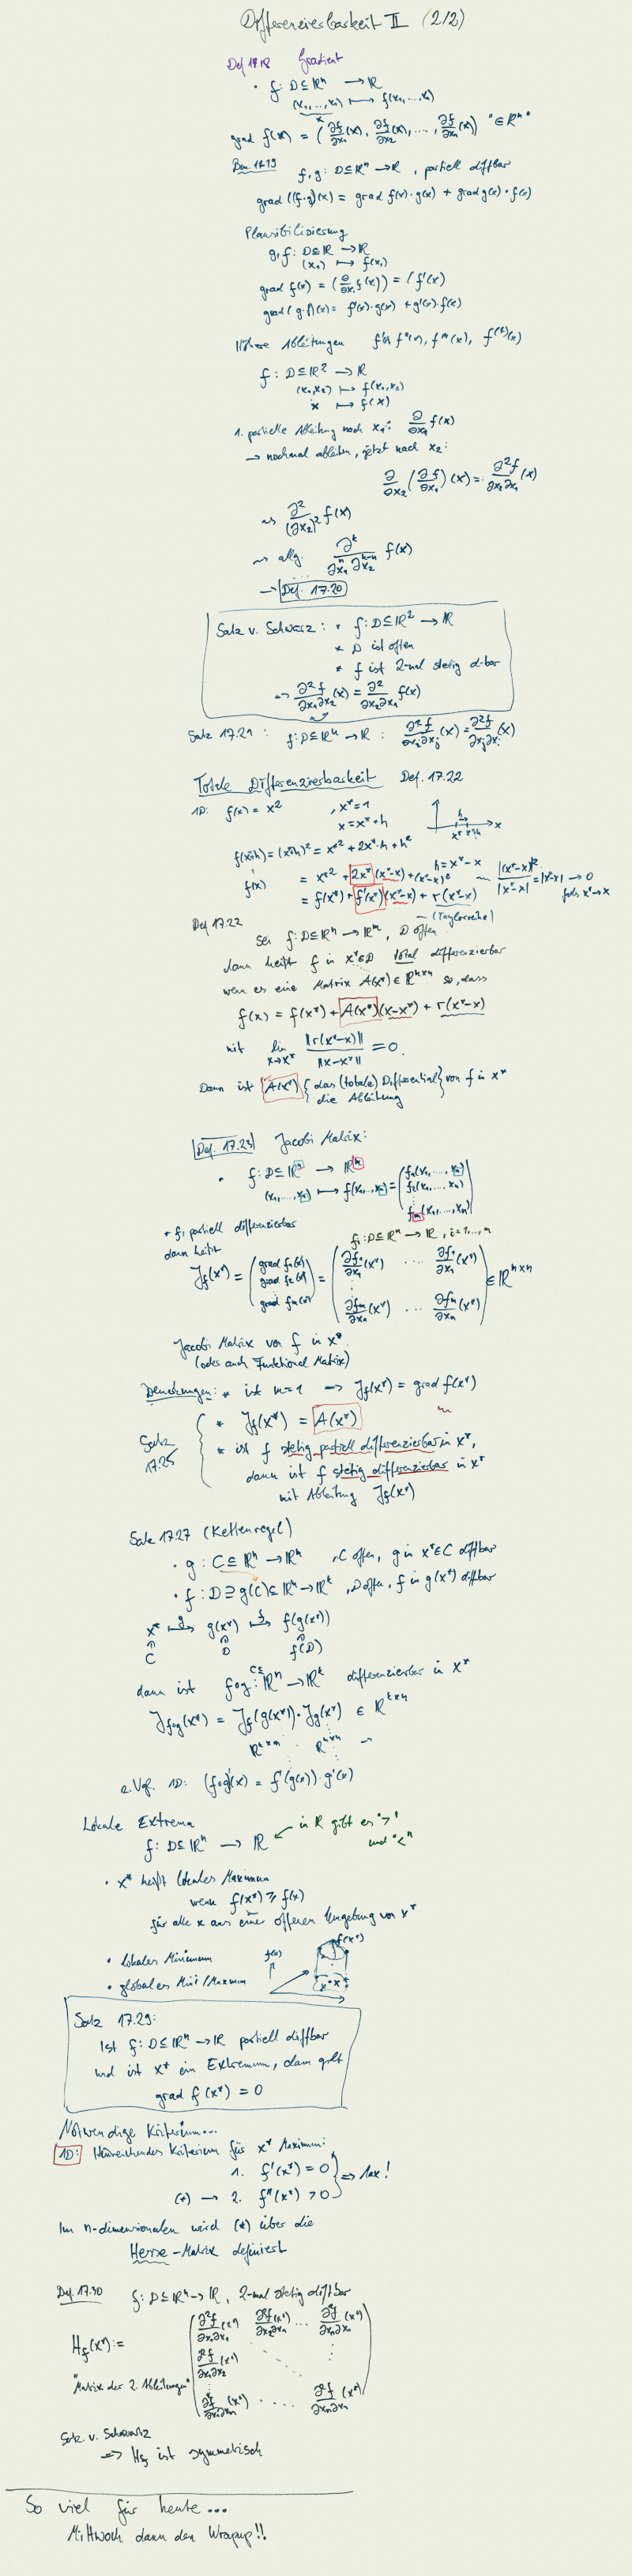 Differenzierbarkeit II (2/2)
Def 17.18 Gradient
• f: D ⊆ ℝⁿ → ℝ
(x₁,...,xₙ) ↦ f(x₁,...,xₙ)
x
grad f(x) = (∂f/∂x₁(x), ∂f/∂x₂(x), ..., ∂f/∂xₙ(x)) "∈ ℝⁿ"
Bem. 17.19 f, g: D ⊆ ℝⁿ → ℝ, partiell diffbar
grad (f·g)(x) = grad f(x)·g(x) + grad g(x)·f(x)
Plausibilisierung
g, f: D ⊆ ℝ → ℝ
(x₁) ↦ f(x₁)
grad f(x) = (∂/∂x₁ f(x)) = (f'(x)
grad (g·f)(x) = f'(x)·g(x) + g'(x)·f(x)
Höhere Ableitungen f'(x), f''(x), f'''(x), f⁽ᵏ⁾(x)
f: D ⊆ ℝ² → ℝ
(x₁,x₂) ↦ f(x₁,x₂)
x ↦ f(x)
1. partielle Ableitung nach x₁: ∂/∂x₁ f(x)
→ nochmal ableiten, jetzt nach x₂:
∂/∂x₂ (∂f/∂x₁)(x) =: ∂²f/∂x₂∂x₁ (x)
⇝ ∂²/(∂x₂)² f(x)
⇝ allg. ∂ᵏ/∂x₁ⁿ ∂x₂ᵏ⁻ⁿ f(x)
→ Def. 17.20
Satz v. Schwarz: * f: D ⊆ ℝ² → ℝ
* D ist offen
* f ist 2-mal stetig d.bar
⇒ ∂²f/∂x₁∂x₂ (x) = ∂²/∂x₂∂x₁ f(x)
Satz 17.21: f: D ⊆ ℝⁿ → ℝ: ∂²f/∂xᵢ∂xⱼ (x) = ∂²f/∂xⱼ∂xᵢ (x)
Totale Differenzierbarkeit Def. 17.22
1D: f(x) = x² , x* = 1
x = x* + h
f(x*+h) = (x*+h)² = x*² + 2x*·h + h²
h = x* - x
f(x) = x*² + 2x*(x*-x) + (x*-x)² ⇝ |(x*-x)|²/|x*-x| = |x*-x| → 0
= f(x*) + f'(x*)(x*-x) + r(x*-x) falls x* → x
~ (Taylorreihe)
Def 17.22
Sei f: D ⊆ ℝⁿ → ℝᵐ, D offen
dann heißt f in x* ∈ D total differenzierbar
wenn es eine Matrix A(x*) ∈ ℝᵐˣⁿ so, dass
f(x) = f(x*) + A(x*)(x-x*) + r(x*-x)
mit lim x→x* ||r(x*-x)||/||x-x*|| = 0.
Dann ist A(x*) { das (totale) Differential } von f in x*
die Ableitung
Def. 17.23 Jacobi Matrix:
• f: D ⊆ ℝⁿ → ℝᵐ
(x₁,...,xₙ) ↦ f(x₁,...,xₙ) = (f₁(x₁,...,xₙ)
f₂(x₁,...,xₙ)
fₘ(x₁,...,xₙ))
* fᵢ partiell differenzierbar
fᵢ: D ⊆ ℝⁿ → ℝ, i=1,...,m
dann heißt
J_f(x*) = (grad f₁(x) grad f₂(x) grad fₘ(x)) = (∂f₁/∂x₁(x*) ... ∂f₁/∂xₙ(x*)
∂fₘ/∂x₁(x*) ... ∂fₘ/∂xₙ(x*)) ∈ ℝᵐˣⁿ
Jacobi Matrix von f in x*
(oder auch Funktional Matrix)
Bemerkungen: * ist m=1 → J_f(x*) = grad f(x*)
Satz 17.25 { * J_f(x*) = A(x*)
* ist f stetig partiell differenzierbar in x*,
dann ist f stetig differenzierbar in x*
mit Ableitung J_f(x*)
Satz 17.27 (Kettenregel)
• g: C ⊆ ℝⁿ → ℝᵐ, C offen, g in x* ∈ C diffbar
• f: D ⊇ g(C) ⊆ ℝᵐ → ℝᵏ, D offen, f in g(x*) diffbar
x* ↦ g g(x*) ↦ f f(g(x*))
C D f(D)
dann ist f∘g: C ⊆ ℝⁿ → ℝᵏ differenzierbar in x*
J_f∘g(x*) = J_f(g(x*))·J_g(x*) ∈ ℝᵏˣⁿ
ℝᵏˣᵐ ℝᵐˣⁿ
z.Vgl. 1D: (f∘g)'(x) = f'(g(x))·g'(x)
Lokale Extrema
f: D ⊆ ℝⁿ → ℝ ← in ℝ gibt es ">"
und "<"
• x* heißt lokales Maximum
wenn f(x*) ≥ f(x)
für alle x aus einer offenen Umgebung von x*
• lokales Minimum
• globales Mini/Maximum
f(x) f(x*) x x*
Satz 17.29:
Ist f: D ⊆ ℝⁿ → ℝ partiell diffbar
und ist x* ein Extremum, dann gilt
grad f(x*) = 0
Notwendige Kriterium...
1D: Hinreichendes Kriterium für x* Maximum:
1. f'(x*) = 0
(*) → 2. f''(x*) > 0 } ⇒ Max!
Im n-dimensionalen wird (*) über die
Hesse-Matrix definiert
Def. 17.30 f: D ⊆ ℝⁿ → ℝ, 2-mal stetig diffbar
H_f(x*) := (∂²f/∂x₁∂x₁(x*) ∂²f/∂x₂∂x₁(x*) ... ∂²f/∂xₙ∂x₁(x*)
∂²f/∂x₁∂x₂(x*)
"Matrix der 2. Ableitungen"
∂²f/∂x₁∂xₙ(x*) .... ∂²f/∂xₙ∂xₙ(x*))
Satz. v. Schwarz
⇒ H_f ist symmetrisch
So viel für heute...
Mittwoch dann den Wrapup!!